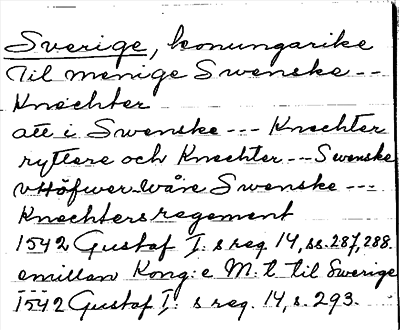 Sverige, konungarike
til menige Swenske --
Knechter
att i Swenske --- Knechter
ryttere och Knechter -- Swenske
wåre Swenske ---
Knechters regement
1542 Gustaf I: s reg. 14, ss. 287, 288.
emillan Kong: e M: t. til Swerige
1542 Gustaf I: s reg. 14, s. 293.